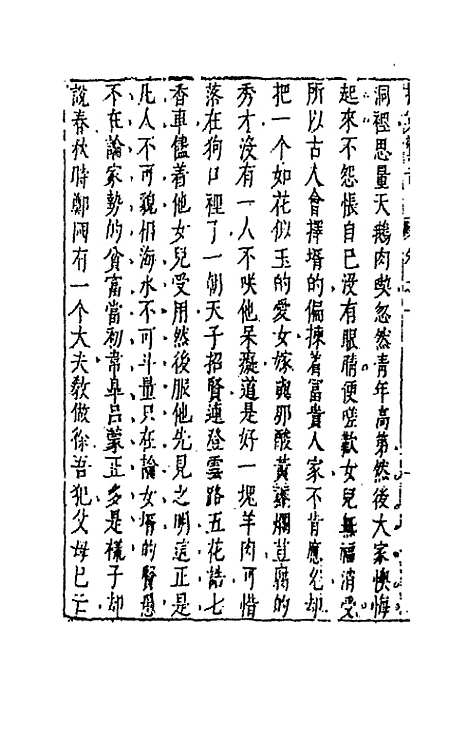 洞裡思量天鵝肉喫忽然青年高第然後大家懊悔
起來不怨悵自己沒有眼睛便嗟歎女兒無福消受
所以古人會擇壻的偏揀着富貴人家不肯應允却
把一个如花似玉的愛女嫁與那酸黃虀爛荳腐的
秀才沒有一人不咲他呆癡道是好一塊羊肉可惜
落在狗口裡了一朝天子招賢連登雲路五花誥七
香車儘着他女兒受用然後服他先見之明這正是
凡人不可貌相海水不可斗量只在論女壻的賢愚
不在論家勢的貧富當初韋皐呂蒙正多是樣子却
說春秋時鄭國有一个大夫教做徐吾犯父母已亡